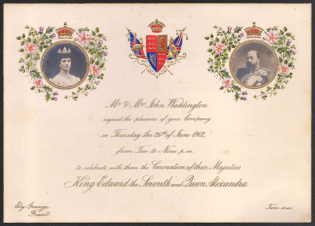 Mr & Mrs John Waddington
request the pleasure of your Company
on Thursday the 26th of June 1902,
from Two to Nine p.m.
to celebrate with them the Coronation of their Majesties
King Edward the Seventh and Queen Alexandra
Ely Grange,
Frant.